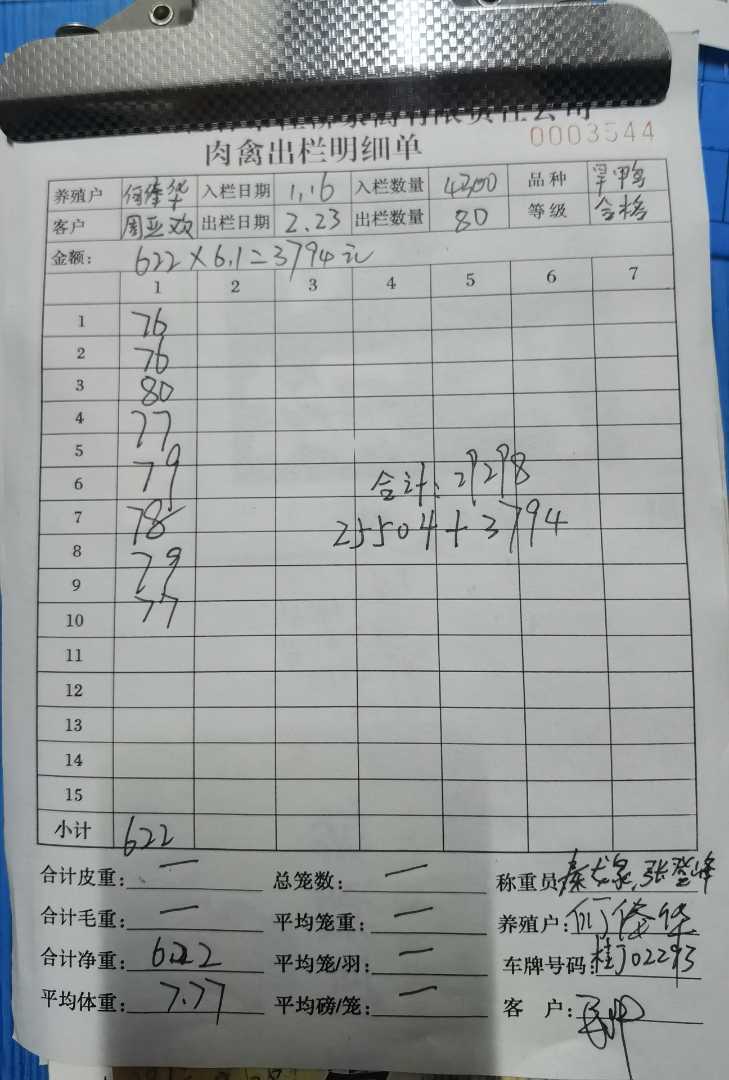 有限责任公司
0003544
肉禽出栏明细单
养殖户 入栏日期 1.16 入栏数量 4300 品种
客户 周亚欢 出栏日期 2.23 出栏数量 80 等级 合格
金额: 622×6.1=3794元
1 2 3 4 5 6 7
1 76
2 76
3 80
4 77
5
6 79
7 78
8 79
9
10 77
合计: 29298
25504+3794
11
12
13
14
15
小计 622
合计皮重: — 总笼数: — 称重员
合计毛重: — 平均笼重: — 养殖户:
合计净重: 622 平均笼/羽: — 车牌号码: 桂J02293
平均体重: 7.77 平均磅/笼: — 客 户: